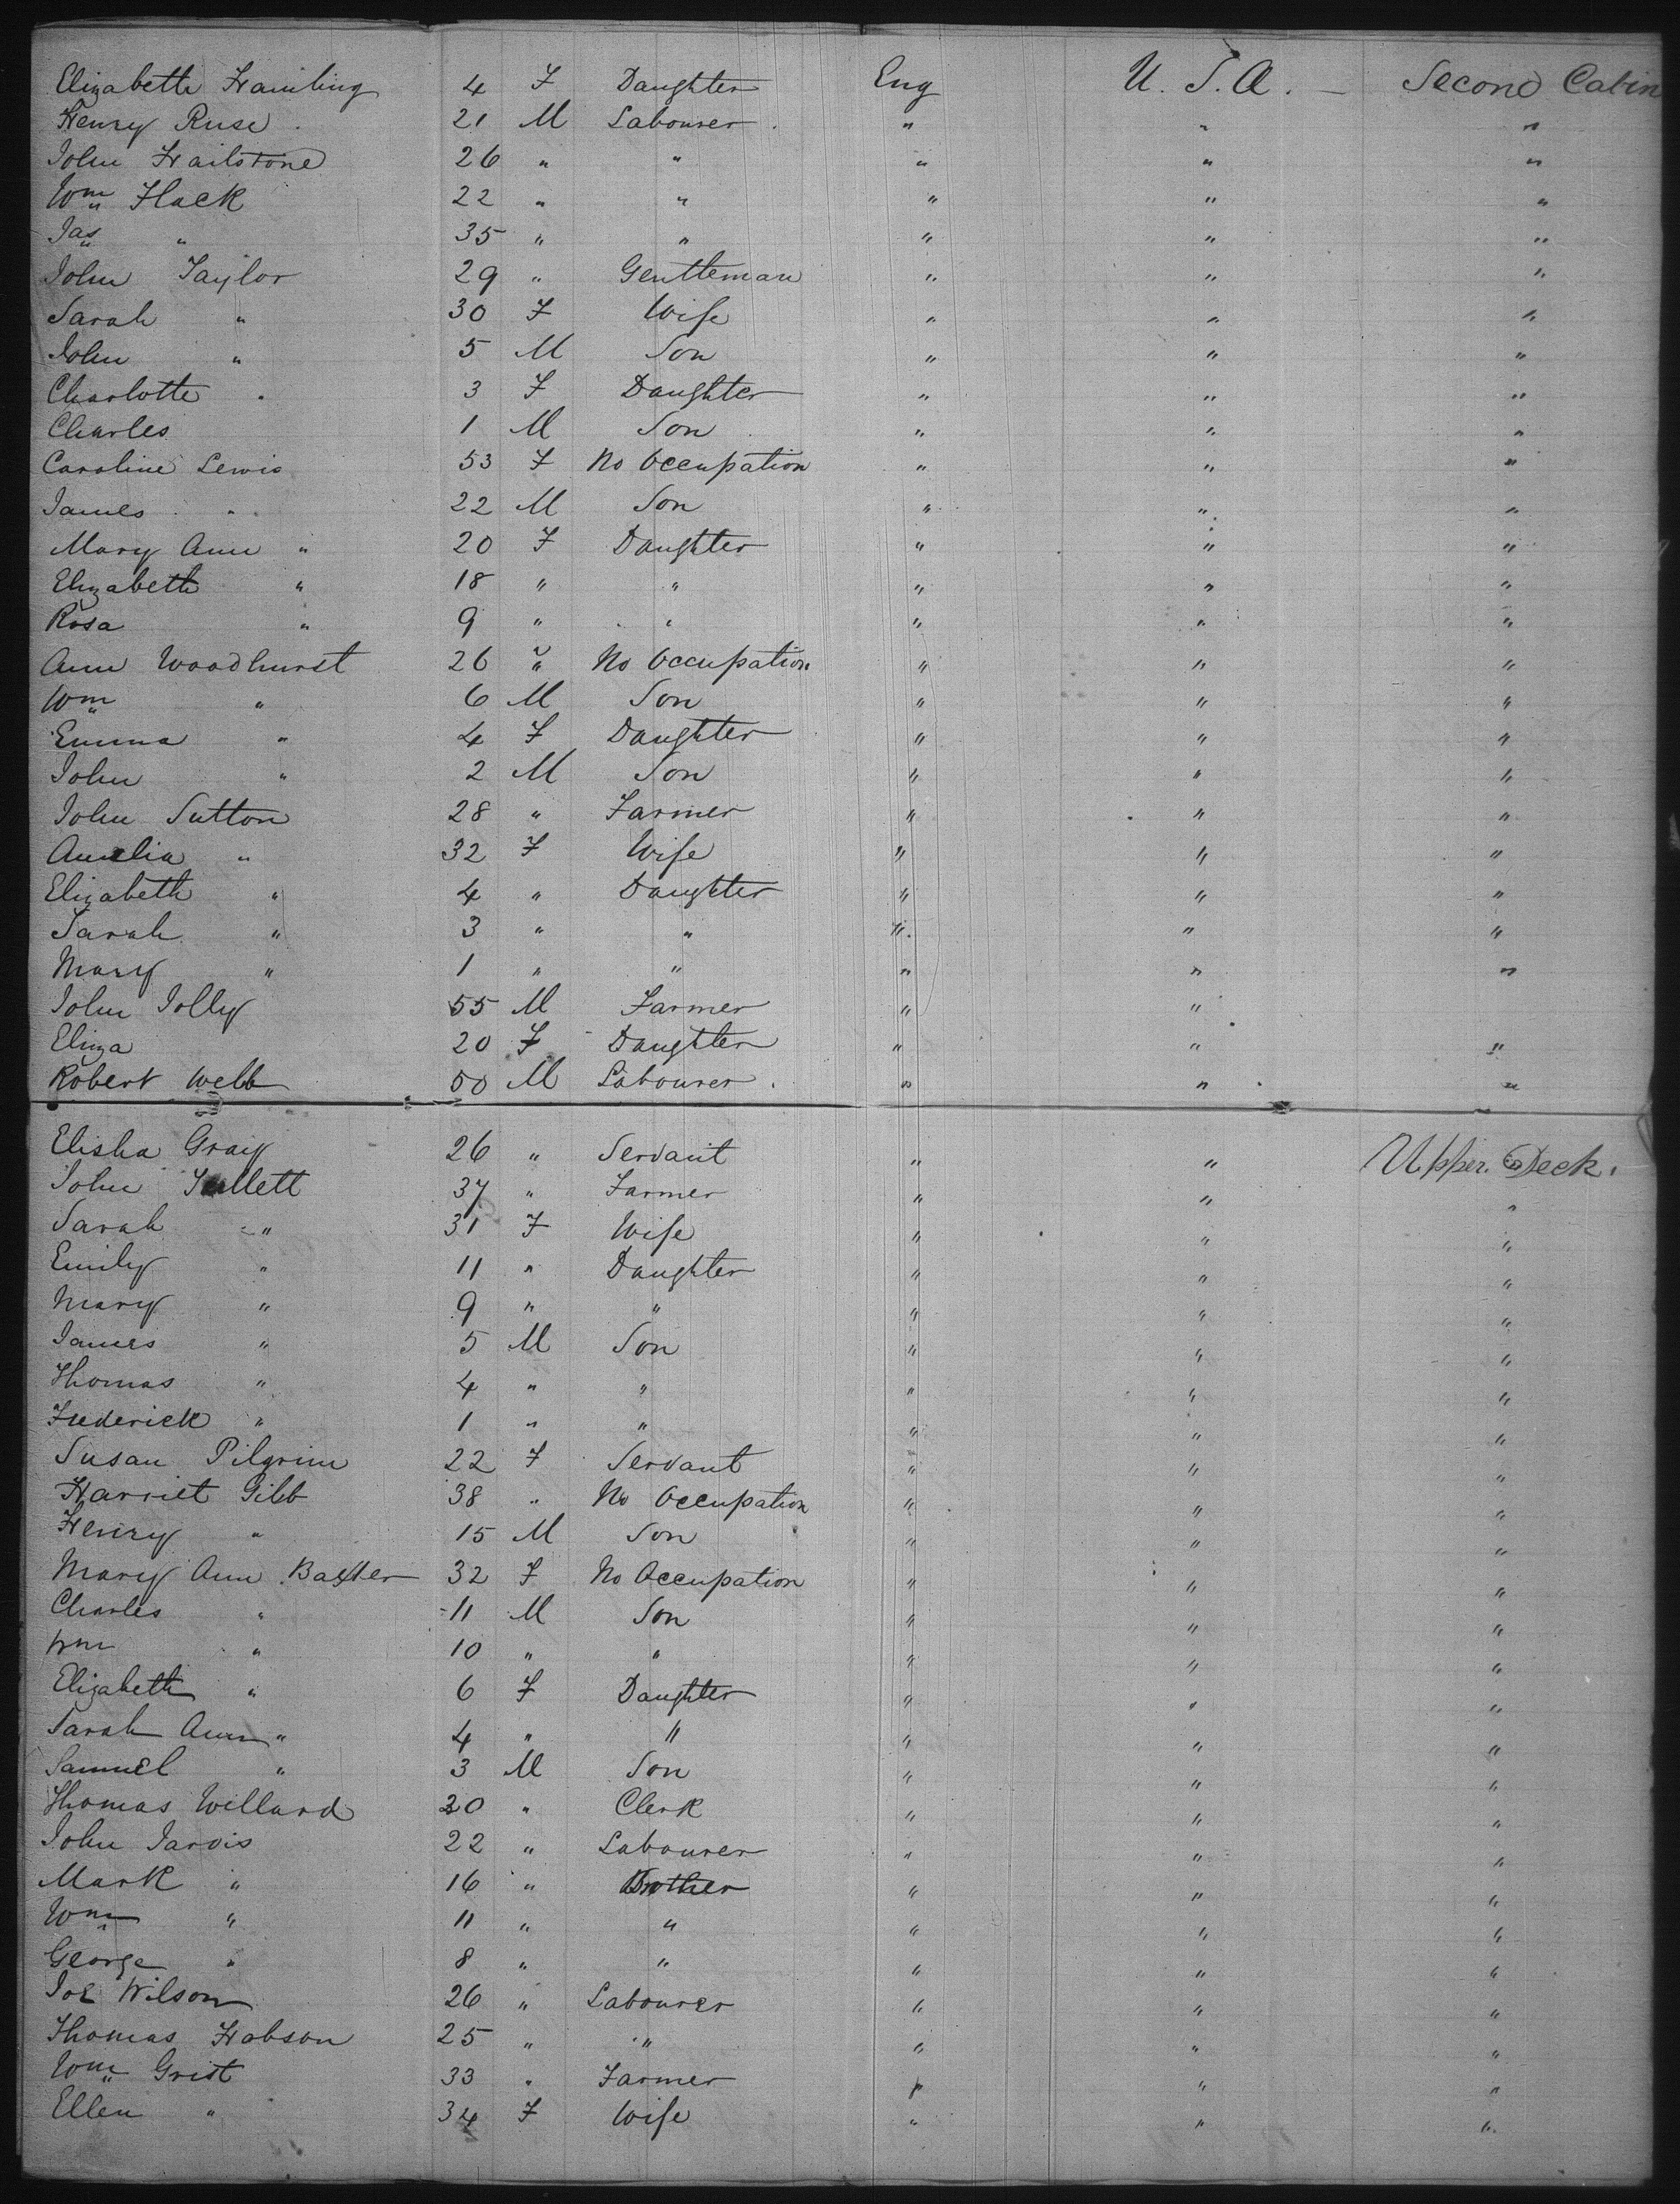 Elizabeth Hamling 4 F Daughter Eng U. S. A. — Second Cabin
Henry Ruse. 21 M Labourer. " " "
John Hailstone 26 " " " " "
Wm Flack 22 " " " " "
Jas " 35 " " " " "
John Taylor 29 " Gentleman " " "
Sarah " 30 F Wife " " "
John " 5 M Son " " "
Charlotte " 3 F Daughter " " "
Charles 1 M Son " " "
Caroline Lewis 53 F No Occupation " " "
James " 22 M Son " " "
Mary Ann " 20 F Daughter " " "
Elizabeth " 18 " " " " "
Rosa " 9 " " " " "
Ann Woodhurst 26 " No Occupation " " "
Wm " 6 M Son " " "
Emma " 4 F Daughter " " "
John " 2 M Son " " "
John Sutton 28 " Farmer " " "
Amelia " 32 F Wife " " "
Elizabeth " 4 " Daughter " " "
Sarah " 3 " " " " "
Mary " 1 " " " " "
John Jolly 55 M Farmer " "
Eliza 20 F Daughter " " "
Robert Webb 50 M Labourer. " " "
Elisha Gray 26 " Servant " " Upper Deck.
John 37 " Farmer " " "
Sarah " 31 F Wife " " "
Emily " 11 " Daughter " " "
Mary " 9 " " " " "
James " 5 M Son " " "
Thomas " 4 " " " " "
Frederick " 1 " " " " "
Susan Pilgrim 22 F Servant " " "
Harriet Gibb 38 " No Occupation " " "
Henry " 15 M Son " " "
Mary Ann Baxter 32 F No Occupation " " "
Charles " 11 M Son " " "
Wm " 10 " " " " "
Elizabeth " 6 F Daughter " " "
Sarah Ann " 4 " " " " "
Samuel " 3 M Son " " "
Thomas Willard 20 " Clerk " " "
John Jarvis 22 " Labourer " " "
Mark " 16 " Brother " " "
Wm " 11 " " " " "
George " 8 " " " " "
Joe Wilson 26 " Labourer " " "
Thomas Hobson 25 " " " " "
Wm Grist 33 " Farmer " " "
Ellen " 34 F Wife " " "